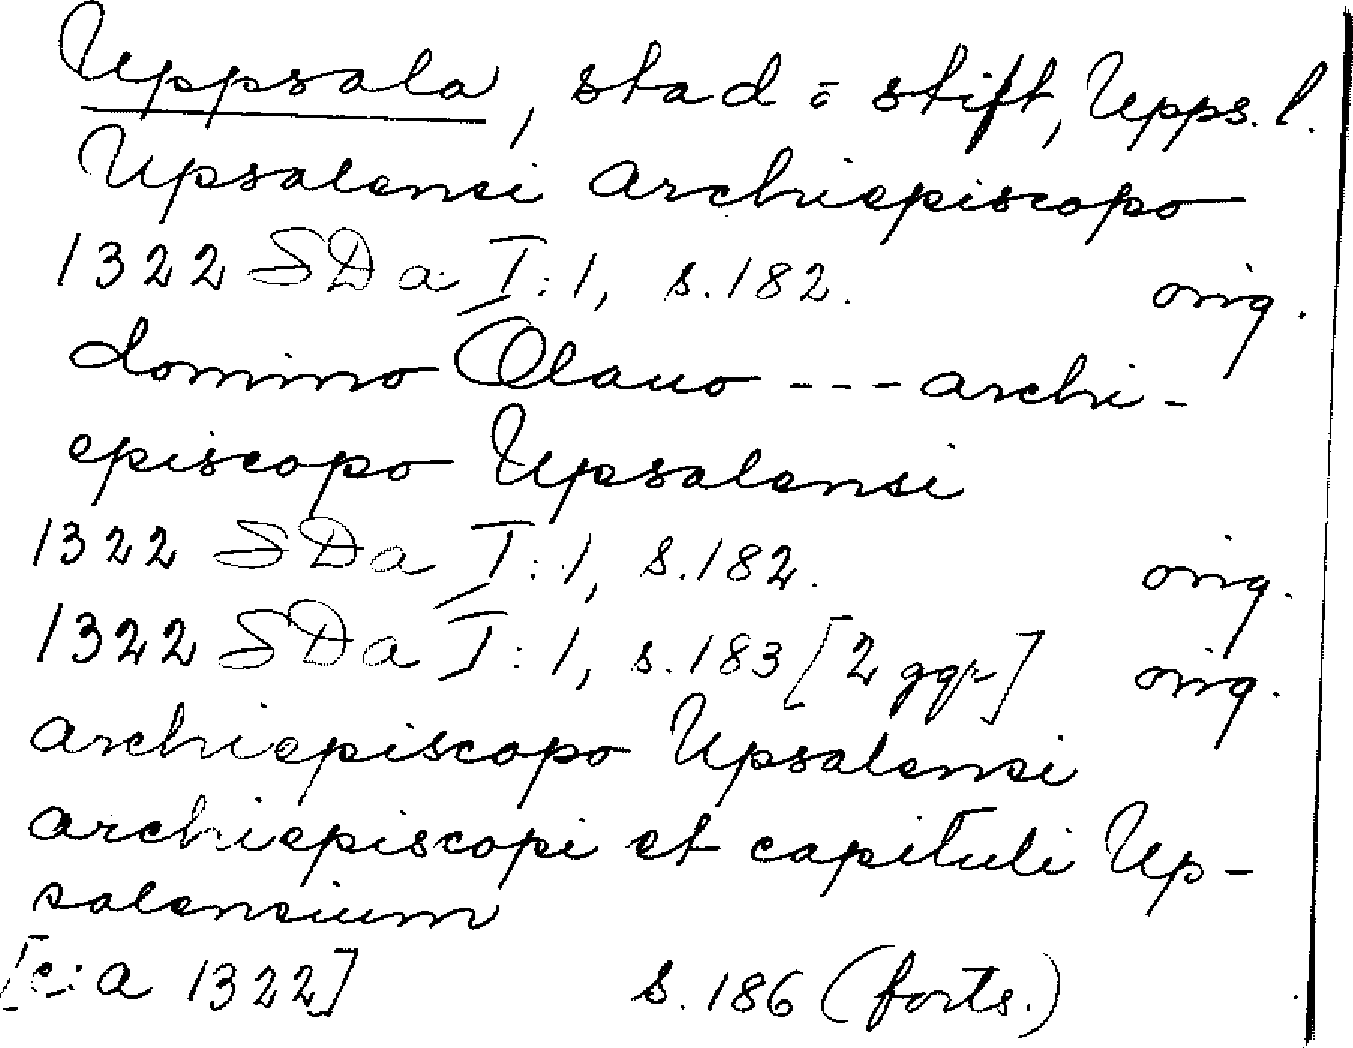 Uppsala, stad o stift, Upps. l.
Upsalensi archiepiscopo
1322 SDa I:1, s.182. orig.
domino Olauo --- archi-
episcopo Upsalensi
1322 SDa I:1, s.182. orig.
1322 SDa I:1, s.183 [2 ggr] orig.
archiepiscopo Upsalensi
archiepiscopi et capituli Up-
salensium
[c:a 1322] s.186 (forts.)